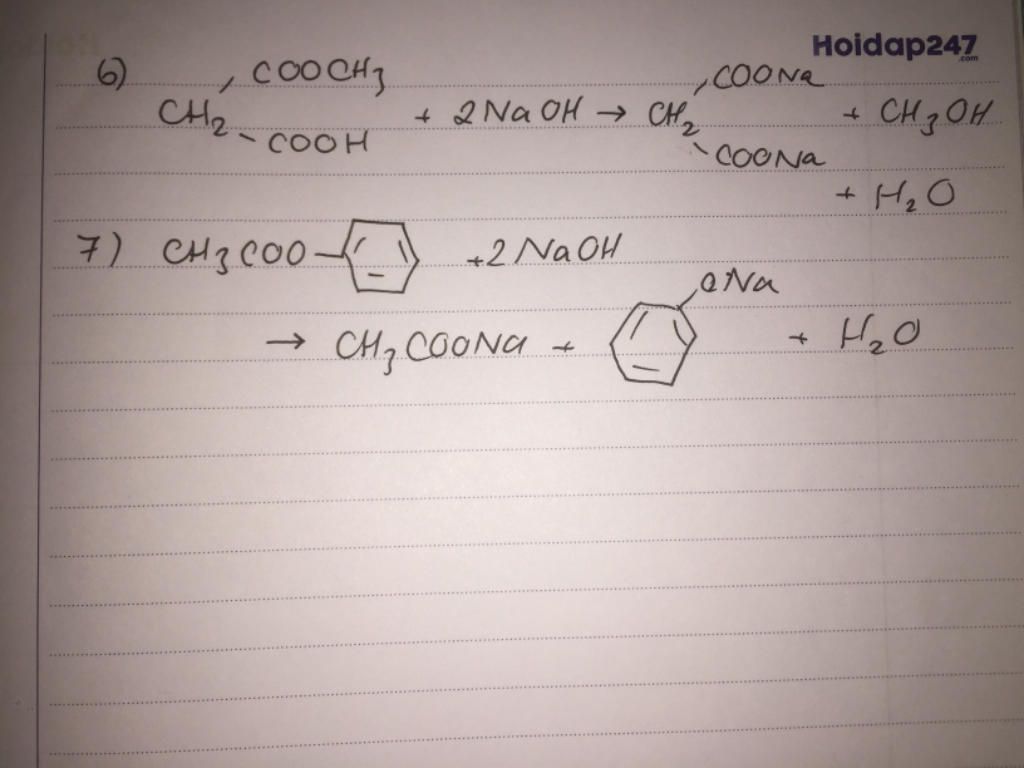 Hoidap247
.com
6) CH2 COOCH3 COOH + 2NaOH → CH2 COONa COONa + CH3OH
+ H2O
7) CH3COO + 2NaOH
→ CH3COONa + ONa + H2O